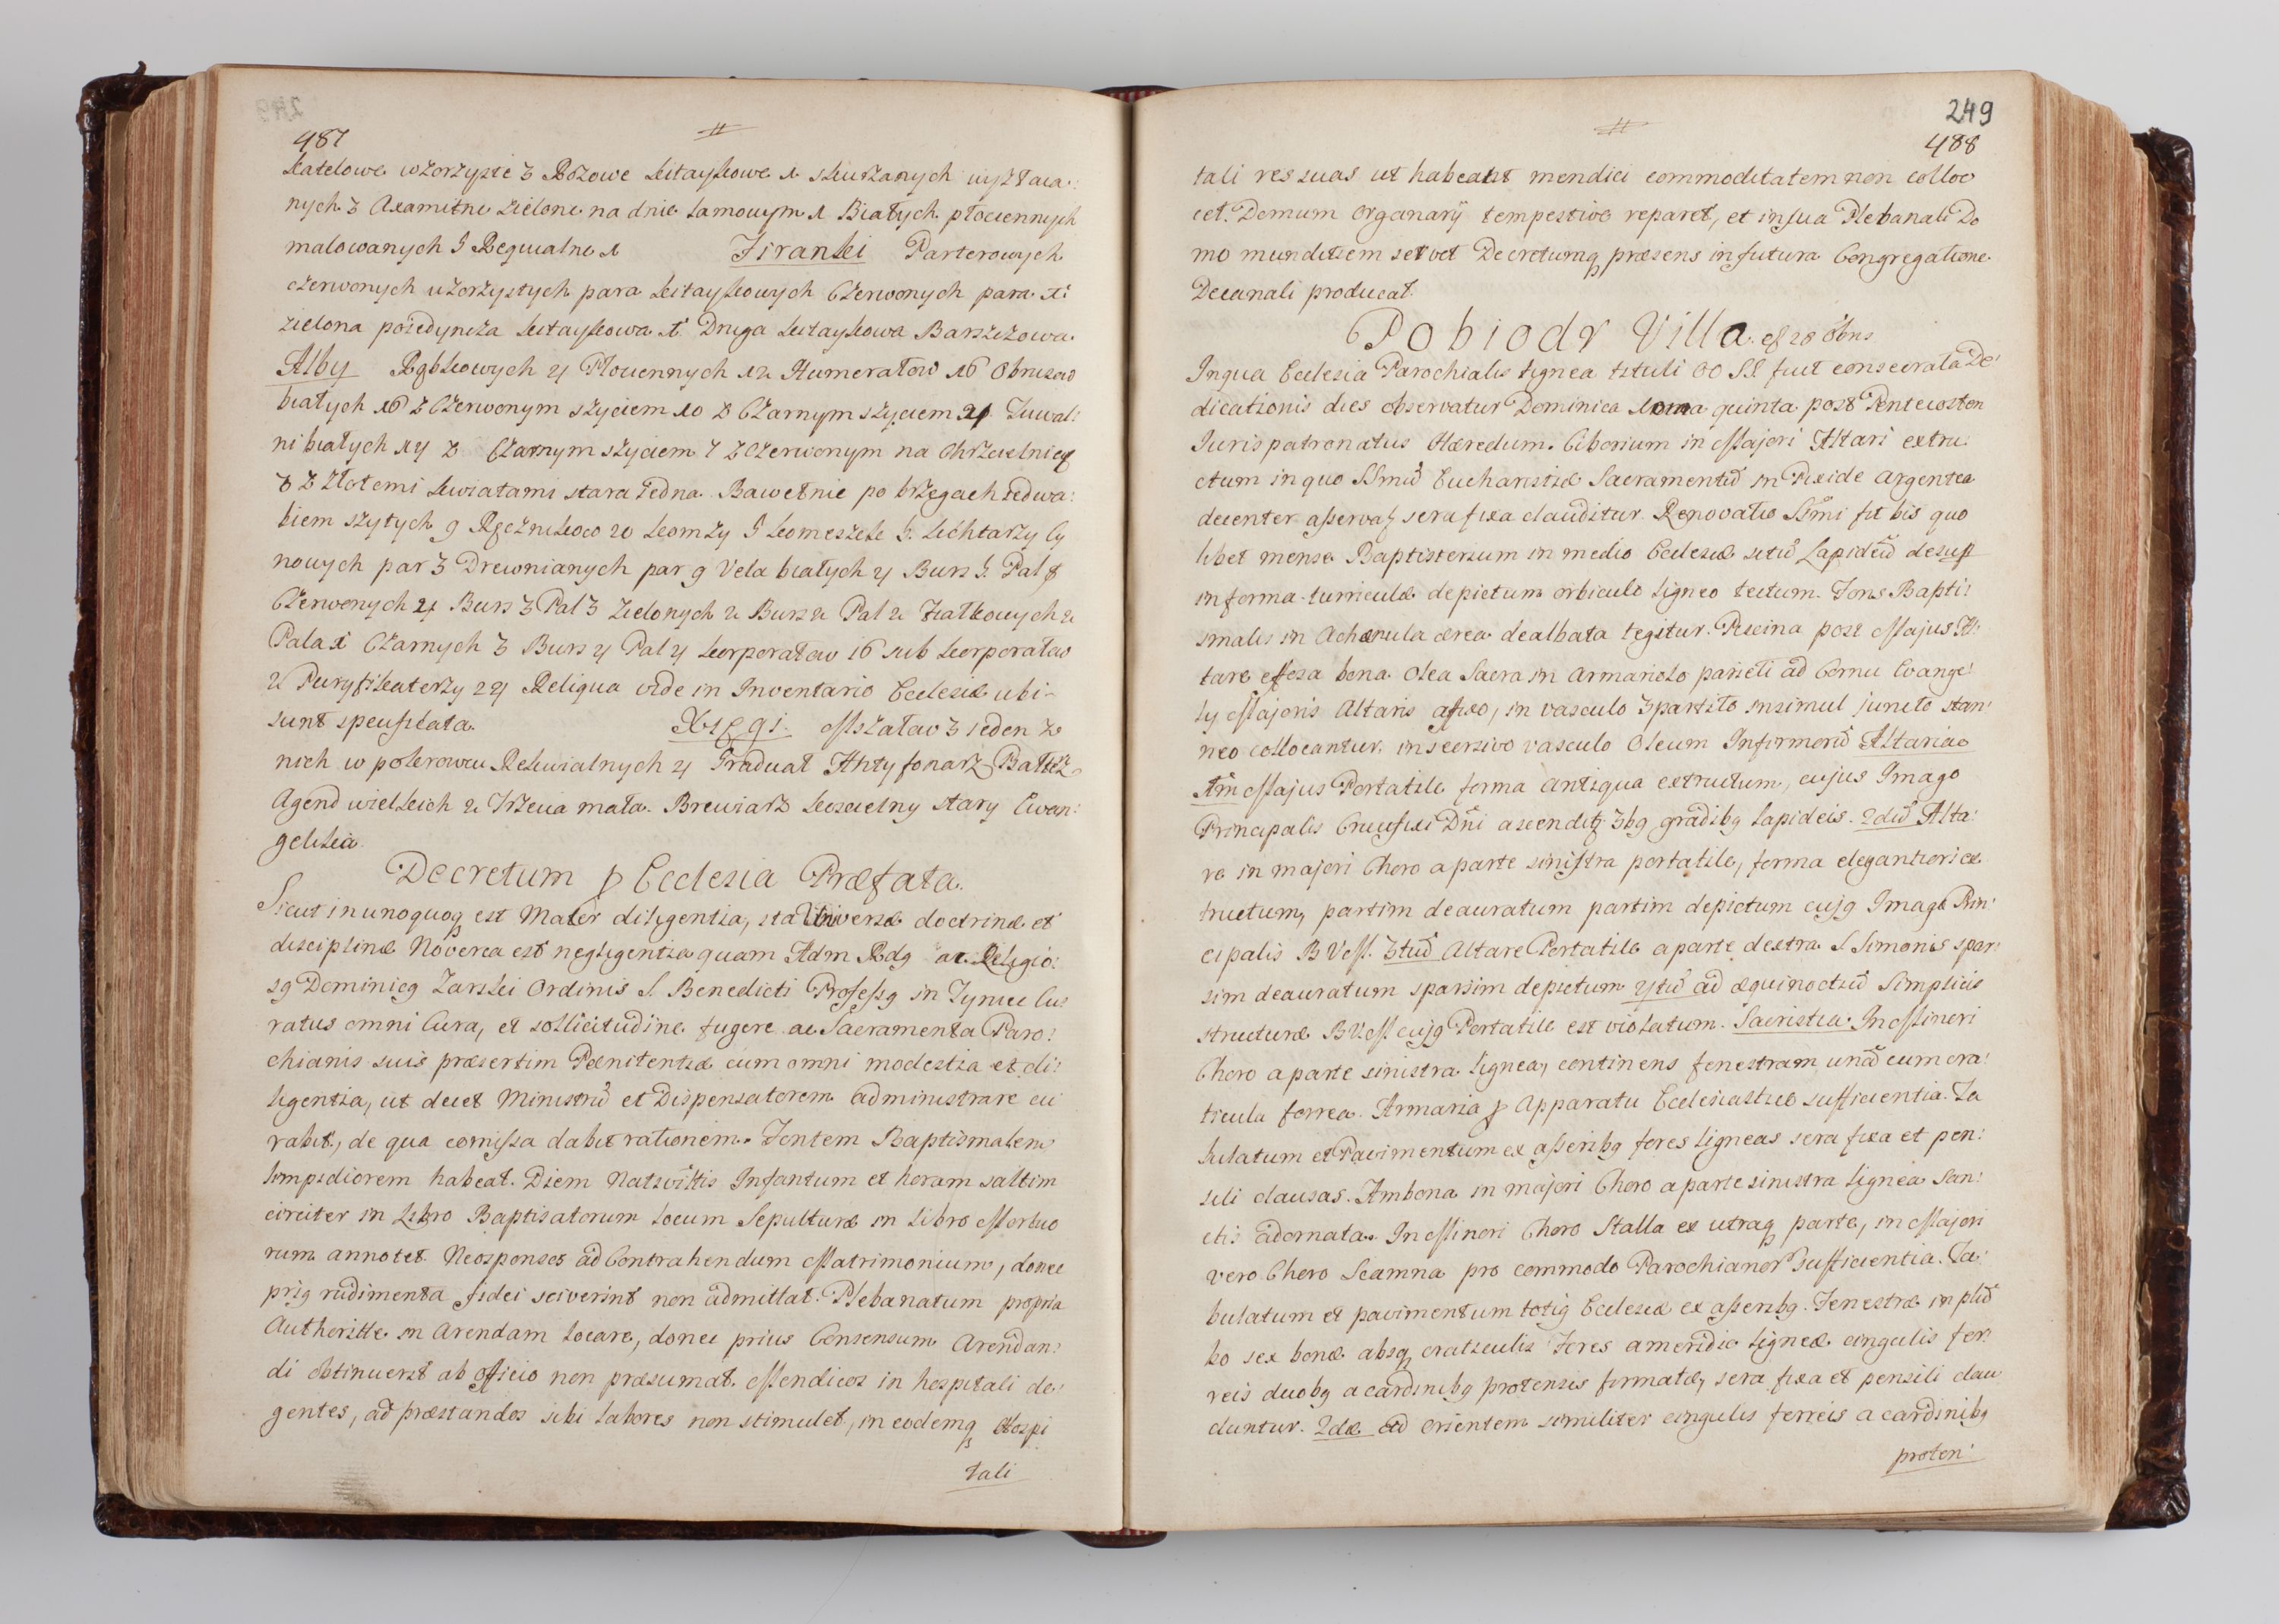 487
katelowe wzorzyste 3 Rozowe kitaykowe 1 skurzanych wyztaca:
nych 3 Axamitne zielone na dnie lamowym 1 Białych płociennych
malowanych 5 Requialne 1 Firanki Parterowych
czerwonych wzorzystych para kitaykowych Czerwonych para 1:
zielona poiedyncza kitaykowa 1: Druga kitaykowa Barszczowa.
Alby Rąbkowych 4 Płociennych 12 Humerałow 16 Obrusow
białych 16 z Czerwonym szyciem 10 z Czarnym szyciem 21 Tuwal:
ni białych 14 z Czarnym szyciem 7 z Czerwonym na Chrzcielnicę
z Złotemi kwiatami stara Iedna Bawełnie po brzegach Iedwa:
biem szytych 9 Ręcznikow 20 komży 5 komeszek 5. Lichtarzy Cy
nowych par 3 Drewnianych par 9 Vela białych 4 Burs 5. Pal 8
Czerwonych 4 Burs 3 Pal 3 Zielonych 2 Burs 2 Pal 2 Fiałkowych 2
Pala 1 Czarnych 3 Burs 4 Pal 4 korporałow 16 sub korporałow
2 Puryfikaterzy 24 Reliqua vide in Inventario Ecclesiæ ubi
sunt specificata. Xsięgi. Mszałow 3 ieden z
nich w polerowcu Rekwialnych 4 Graduał Antyfonarz Psałterz
Agend wielkich 2 Trzecia mała. Brewiarz koscielny stary Ewan:
gelika.
Decretum p Ecclesia Præfata.
Sicut in unoquoq est Mater diligentia, ita Universæ doctrinæ et
disciplinæ Noverca est negligentia quam Adm Rdg ac Religio:
sg Dominicg Zarski Ordinis S. Benedicti Professg in Tyniec Cu:
ratus omni Cura, et sollicitudine fugere ac Sacramenta Paro:
chianis suis præsertim Pænitentiæ cum omni modestia et di:
ligentia, ut decet Ministrũ et Dispensatorem administrare cu
rabit, de qua comissa dabit rationem. Fontem Baptismalem
limpidiorem habeat. Diem Nativittis Infantum et horam saltim
circiter in Libro Baptisatorum locum Sepulturæ in Libro Mortuo
rum annotet. Neosponsos ad Contrahendum Matrimonium, donec
prig rudimenta fidei sciverint non admittat. Plebanatum propria
Authoritte in Arendam locare, donec prius Consensum Arendan:
di obtinuerit ab officio non præsumat. Mendicos in hospitali de:
gentes, ad præstandos sibi labores non stimulet, in eodemq Hospi
tali
249
488
tali res suas ut habeant mendici commoditatem non colloc
cet. Domum Organarÿ tempestive reparet, et in sua Plebanali Do
mo munditiem servet Decretumq præsens in futura Congregatione
Decanali producat.
Pobiodr Villa. 28 8bris
In qua Ecclesia Parochialis lignea tituli OO SS fuit consecrata De:
dicationis dies observatur Dominica quinta post Pentecosten
Iuris patronatus Hæredum. Ciborium in Majori Altari extru:
ctum in quo SSmũ Eucharistiæ Sacramentũ in Pixide argentea
decenter asservatʒ sera fixa clauditur. Renovatio SSmi fit bis quo
libet mense Baptisterium in medio Ecclesiæ sitũ Lapideũ desup
in forma turriculæ depictum orbiculo ligneo tectum. Fons Bapti:
smalis in Achenula ærea dealbata tegitur. Piscina post Majus Al:
tare effosa bona. Olea Sacra in Armariolo parieti ad Cornu Evange:
ly Majoris Altaris afixo, in vasculo 3partito insimul juncto stan:
neo collocantur, inscersivo vasculo Oleum Infirmorũ Altaria
1m Majus Portatile forma antiqua extructum, cujus Imago
Principalis Crucifixi Dñi ascenditʒ 3bg gradibg lapideis. 2dũ Alta:
re in majori Choro a parte sinistra portatile, forma elegantiori ex
tructum, partim deauratum partim depictum cujg Imago Prin:
cipalis B V M. 3tiũ Altare Portatile a parte dextra S Simonis spar:
sim deauratum sparsim depictum 4tũ ad æquinoctiũ Simplicis
structuræ B V M cujg Portatile est violatum. Sacristia. In Minori
Choro a parte sinistra lignea, continens fenestram unã cum cra:
ticula ferrea. Armaria p Apparatu Ecclesiastico sufficientia. Ta
bulatum et Pavimentum ex asseribg fores ligneas sera fixa et pen:
sili clausas. Ambona in majori Choro a parte sinistra lignea San:
ctis adornata. In Minori Choro Stalla ex utraq parte, in Majori
vero Choro Scamna pro commodo Parochianor sufficientia. Ta:
bulatum et pavimentum totig Ecclesiæ ex asseribg. Fenestræ in plũ
bo sex bonæ absq craticulis Fores a meridie ligneæ cingulis fer:
reis duobg a cardinibg protensis firmatæ, sera fixa et pensili clau
duntur. 2dæ ad orientem similiter cingulis ferreis a cardinibg
proten: